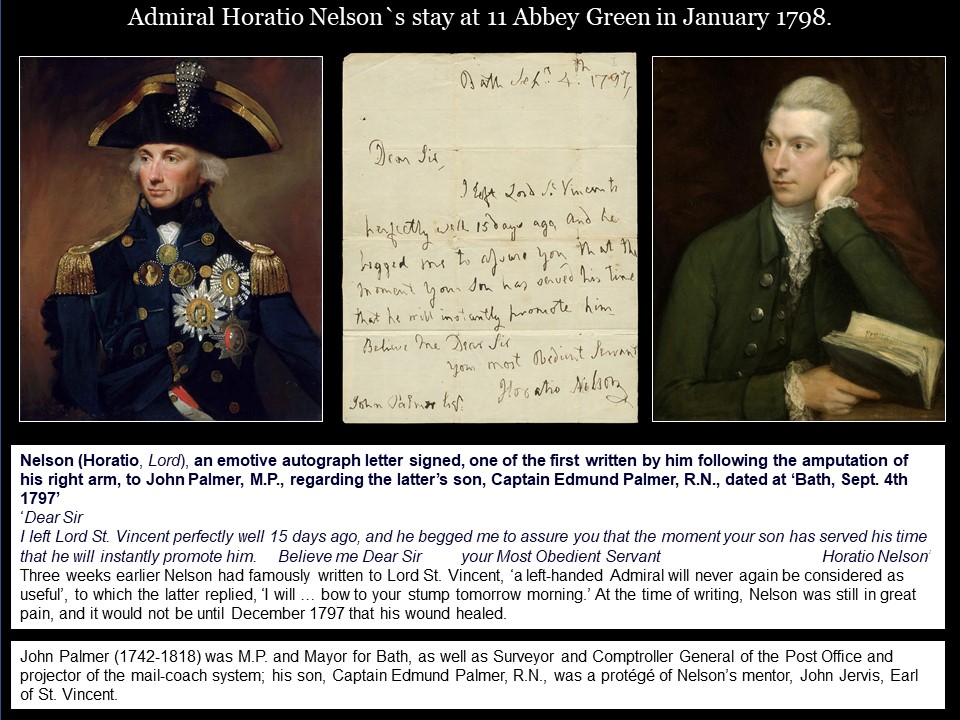 Admiral Horatio Nelson`s stay at 11 Abbey Green in January 1798.
Bath Sepr. 4th. 1797,
Dear Sir,
I left Lord St. Vincent
perfectly well 15 days ago, and he
begged me to assure you that the
moment your Son has served his time
that he will instantly promote him
Believe Me Dear Sir
your most Obedient Servant
Horatio Nelson
John Palmer Esqr.
Nelson (Horatio, Lord), an emotive autograph letter signed, one of the first written by him following the amputation of
his right arm, to John Palmer, M.P., regarding the latter’s son, Captain Edmund Palmer, R.N., dated at ‘Bath, Sept. 4th
1797’
‘Dear Sir
I left Lord St. Vincent perfectly well 15 days ago, and he begged me to assure you that the moment your son has served his time
that he will instantly promote him. Believe me Dear Sir your Most Obedient Servant Horatio Nelson’
Three weeks earlier Nelson had famously written to Lord St. Vincent, ‘a left-handed Admiral will never again be considered as
useful’, to which the latter replied, ‘I will … bow to your stump tomorrow morning.’ At the time of writing, Nelson was still in great
pain, and it would not be until December 1797 that his wound healed.
John Palmer (1742-1818) was M.P. and Mayor for Bath, as well as Surveyor and Comptroller General of the Post Office and
projector of the mail-coach system; his son, Captain Edmund Palmer, R.N., was a protégé of Nelson’s mentor, John Jervis, Earl
of St. Vincent.